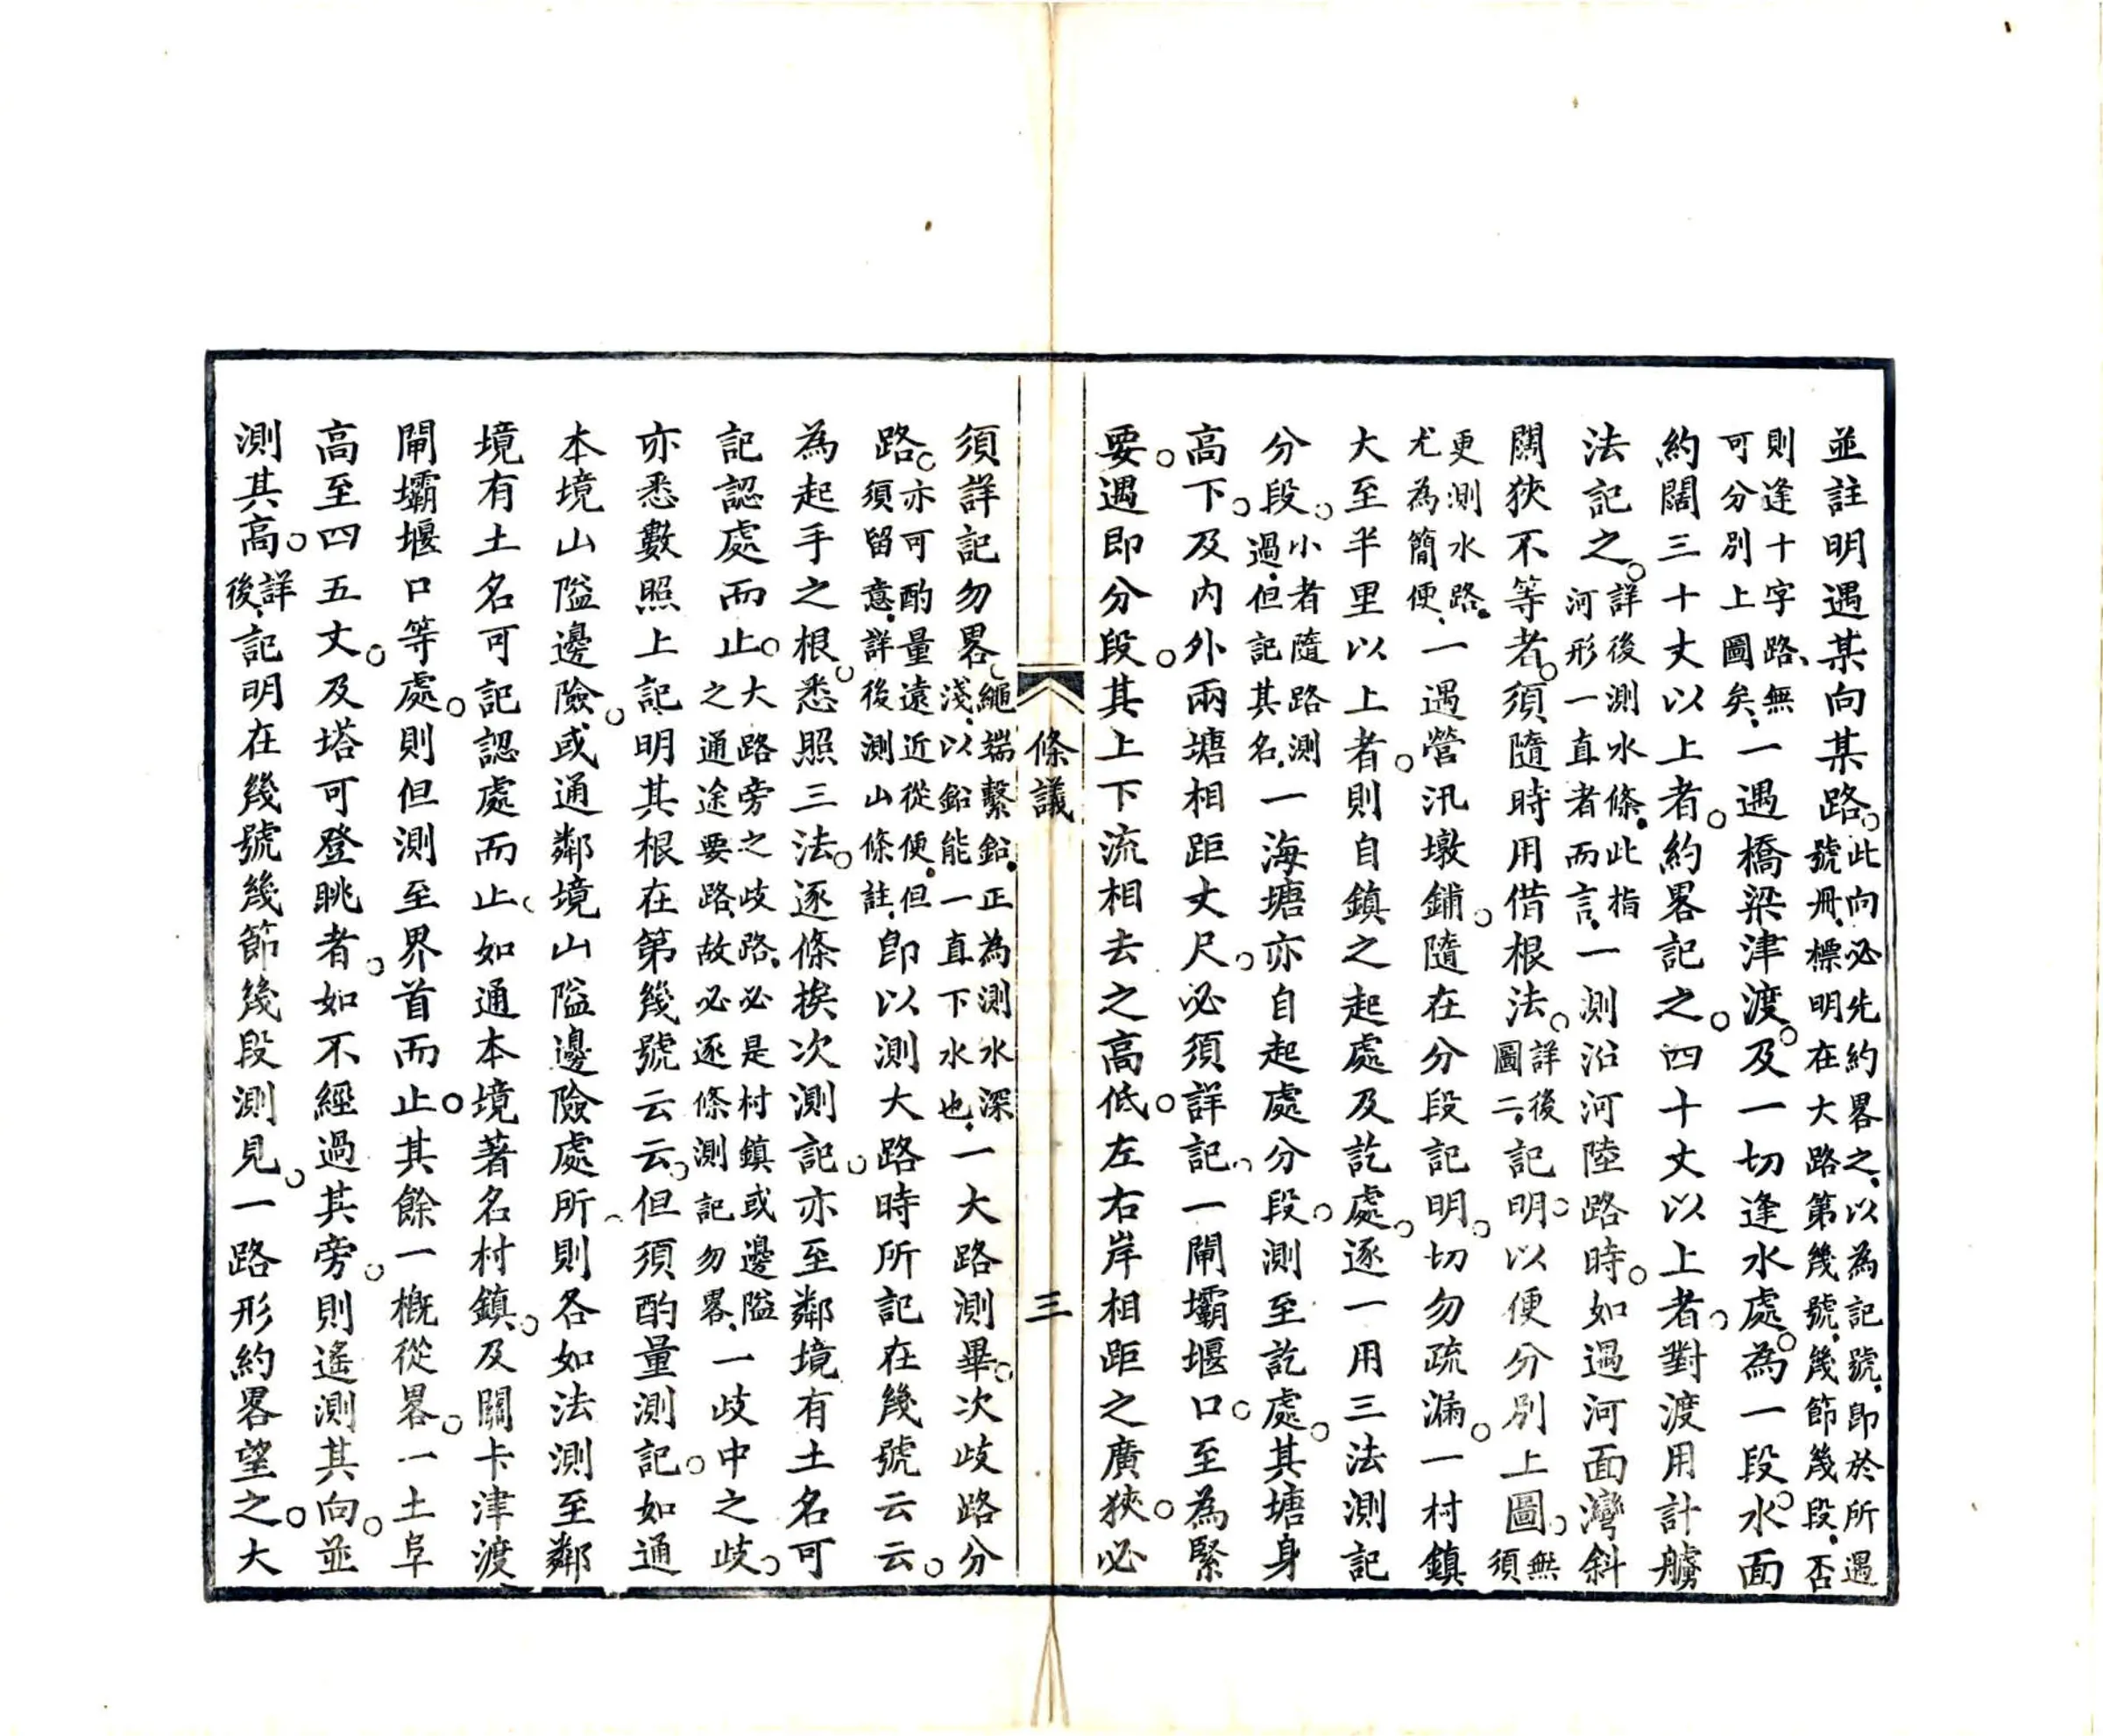 並註明遇某向某路。此向必先約畧之、以為記號、即於所遇
號冊、標明在大路第幾號、幾節幾段、否
則逢十字路、無
可分別上圖矣、一遇橋梁津渡。及一切逢水處。為一段。水面
約闊三十丈以上者。約畧記之。四十丈以上者。對渡用計艣
法記之。詳後測水條、此指
河形一直者而言、一測沿河陸路時。如過河面灣斜
闊狹不等者。須隨時用借根法。詳後
圖二、記明。以便分別上圖。無
須
更測水路、
尤為簡便、一遇營汛墩鋪。隨在分段記明。切勿疏漏。一村鎮
大至半里以上者。則自鎮之起處及訖處。逐一用三法測記
分段。小者隨路測
過、但記其名、一海塘亦自起處分段。測至訖處。其塘身
高下。及內外兩塘相距丈尺。必須詳記。一閘壩堰口。至為緊
要。遇即分段。其上下流相去之高低。左右岸相距之廣狹。必
條議
三
須詳記勿畧。繩端繫鉛、正為測水深
淺、以鉛能一直下水也、一大路測畢。次歧路分
路。亦可酌量遠近從便、但
須留意、詳後測山條註、即以測大路時所記在幾號云云。
為起手之根。悉照三法。逐條挨次測記。亦至鄰境有土名可
記認處而止。大路旁之歧路、必是村鎮或邊隘
之通途要路、故必逐條測記勿畧、一歧中之歧。
亦悉數照上記明其根在第幾號云云。但須酌量測記。如通
本境山隘邊險。或通鄰境山隘邊險處所。則各如法測至鄰
境有土名可記認處而止。如通本境著名村鎮。及關卡津渡
閘壩堰口等處。則但測至界首而止。其餘一概從畧。一土阜
高至四五丈。及塔可登眺者。如不經過其旁。則遙測其向。並
測其高。詳
後、記明在幾號幾節幾段測見。一路形約畧望之。大